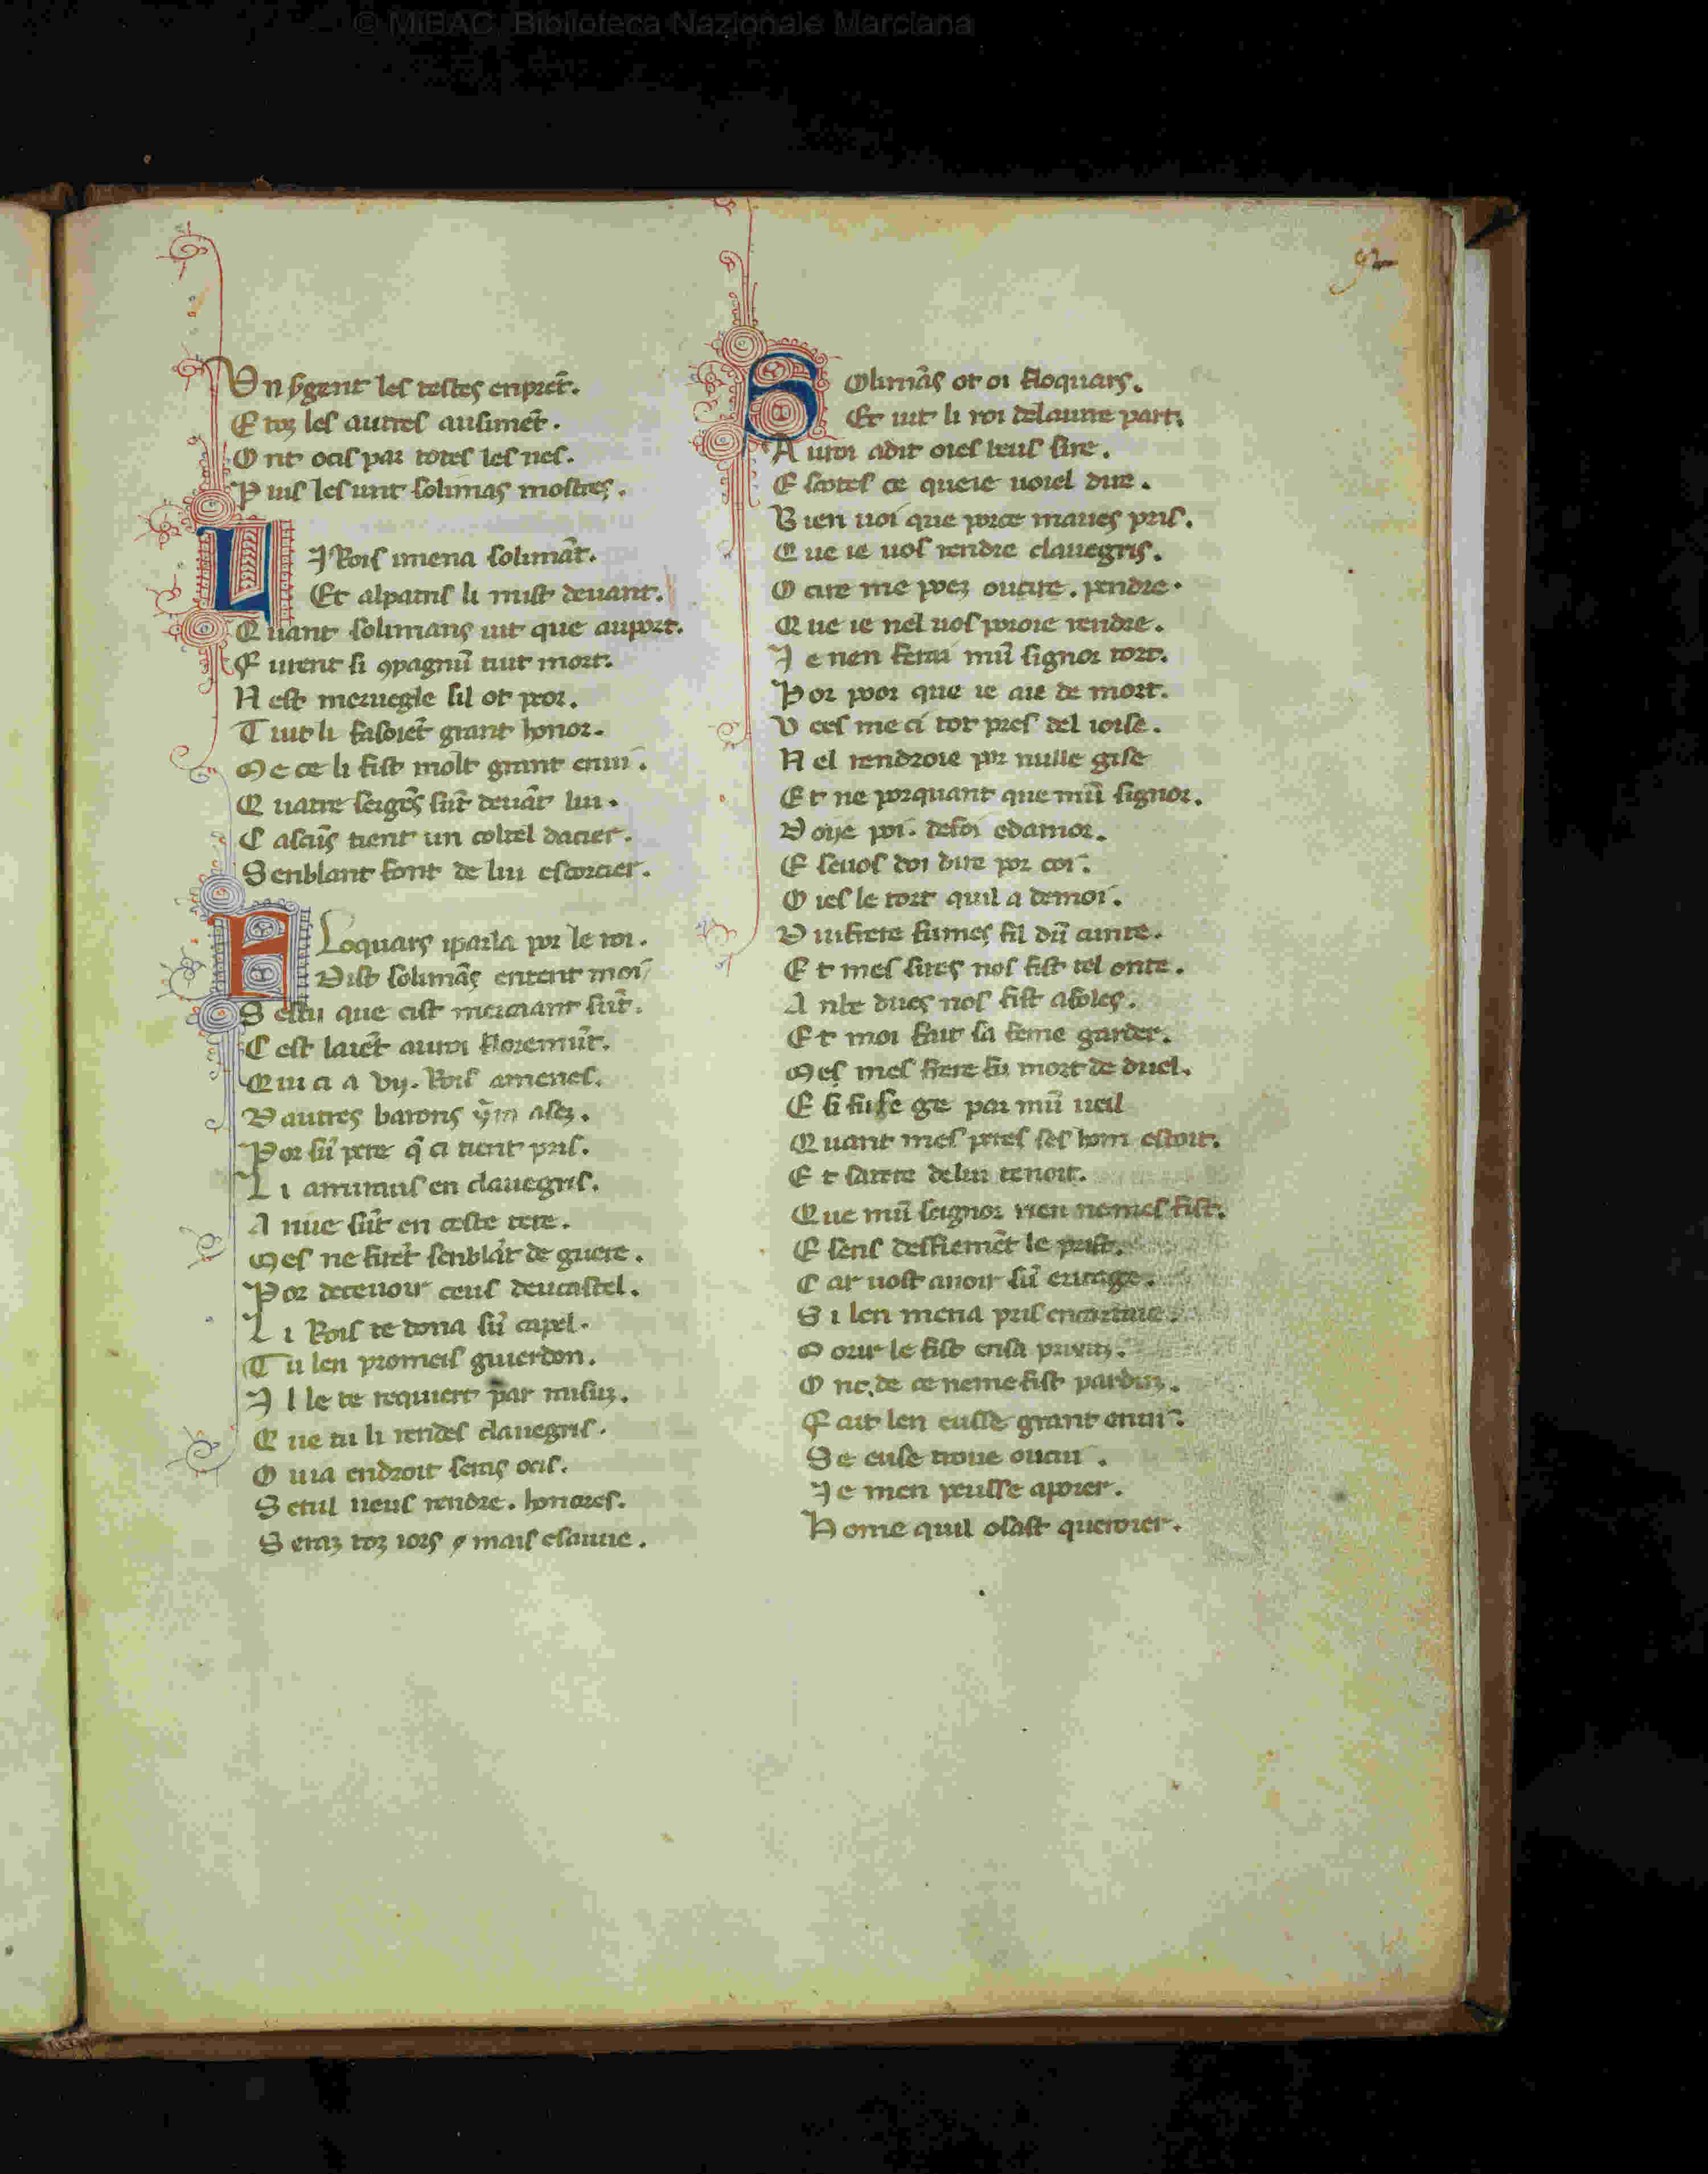 © MiBAC, Biblioteca Nazionale Marciana
Vn ſergent les testes en pret̃.
E toz les autres ausimet̃.
O nt ocis par totes les nes.
P uis les unt solimas mostres.
L I Rois imena solimãt.
Et alpatris li mist deuant.
Q uant solimans uit que au port.
F urent si ꝯpagnũ tuit mort.
N est meruegle sil ot peor.
T uit li fasoiet̃ grant honor.
M e ce li fist molt grant enui.
Q uatre sergẽs sũt deuãt lui.
C ascũs tient un coltel dacier.
S enblant font de lui escorcier.
F Loquars iparla por le roi.
Dist solimãs entent moi
S es tu que cist merciant sũt.
C est laiet̃ au roi floremũt.
Qui ci a vij. Rois amenes.
D autres barons asez.
P or sũ pere q̃ ci tient pris.
L i arriuius en clauegris.
A nue sũt en ceste tere.
M es ne firet̃ senblãt de guere.
P or deceuoir ceus deu castel.
L i Rois te dona sũ capel.
T u len promeis guierdon.
I l le te requiert par
Q ue tu li rendes clauegris.
O uia endroit seras ocis.
S etul ueus rendre. honores.
S eraz toz iors mais esamie.
S Olimãs ot oi floquars.
Et uit li roi delautre part.
A u roi a dit oies beus sire.
E scotes ce que ie uoiel dire.
B ien uoi que por ce maues pris.
Q ue ie uos rendre clauegris.
O cire me poez oucire. pendre.
Q ue ie nel uos poroie rendre.
I e nen ferai mũ signor tort.
P or poor que ie aie de mort.
V ees me ci tot pres del ioise.
N el rendroie por nulle gise
E t ne porquant que mũ signor.
D oije poi. de foi edamor.
E se uos doi dire por coi.
O ies le tort quil a de moi.
D ui frere fumes fil dũ cunte.
E t mes sires nos fist tel onte.
A nbe dues nos fist afoles.
E t moi fait sa feme garder.
M es mes frere fu mort de duel.
E si fuse ge par mũ ueil
Q uant mes peres ses hom estoit.
E t sa tere de lui tenoit.
Q ue mũ seignor rien ne mesfist.
E sens desfiemẽt le prist.
C ar uost auoir sũ eritage.
S i len mena pris
M orir le fist en sa
O nc. de ce ne me fist pardũ.
F ait len eusse grant enui.
S e euse troue oucui.
I e men peusse apoier.
H ome quil osast querroier.